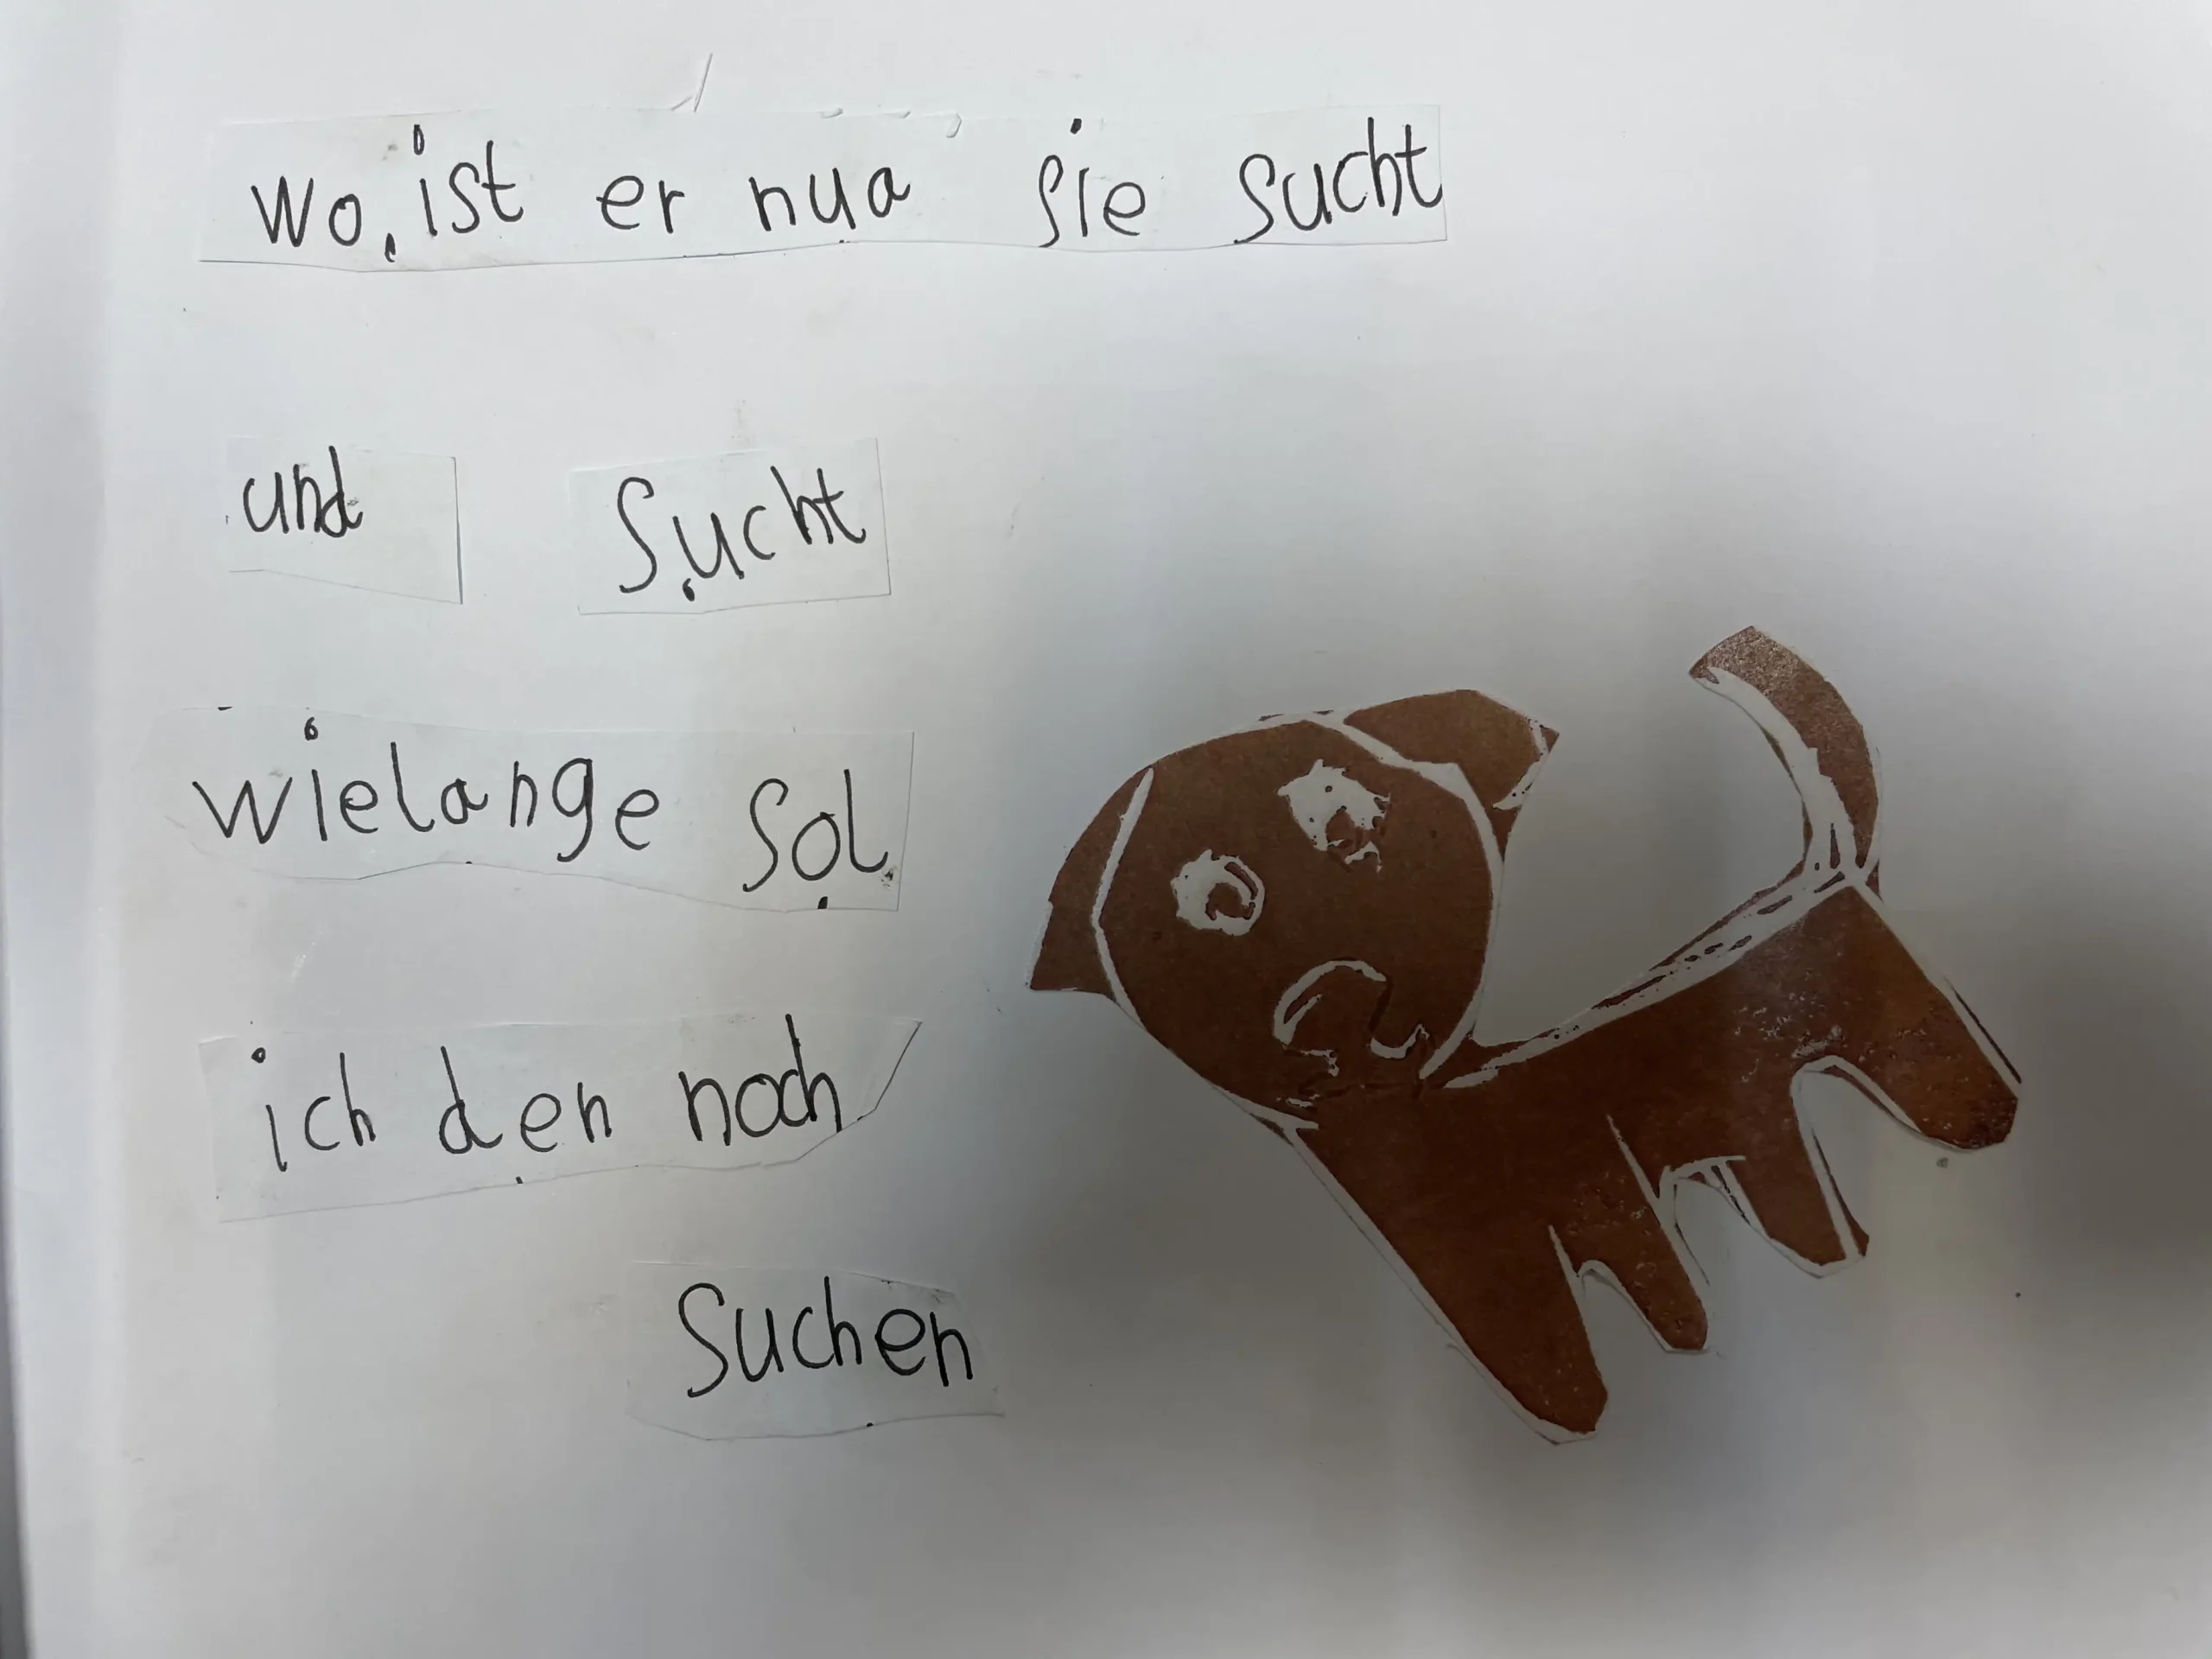 wo ist er nua sie sucht
und sucht
wielange sol
ich den noch
suchen